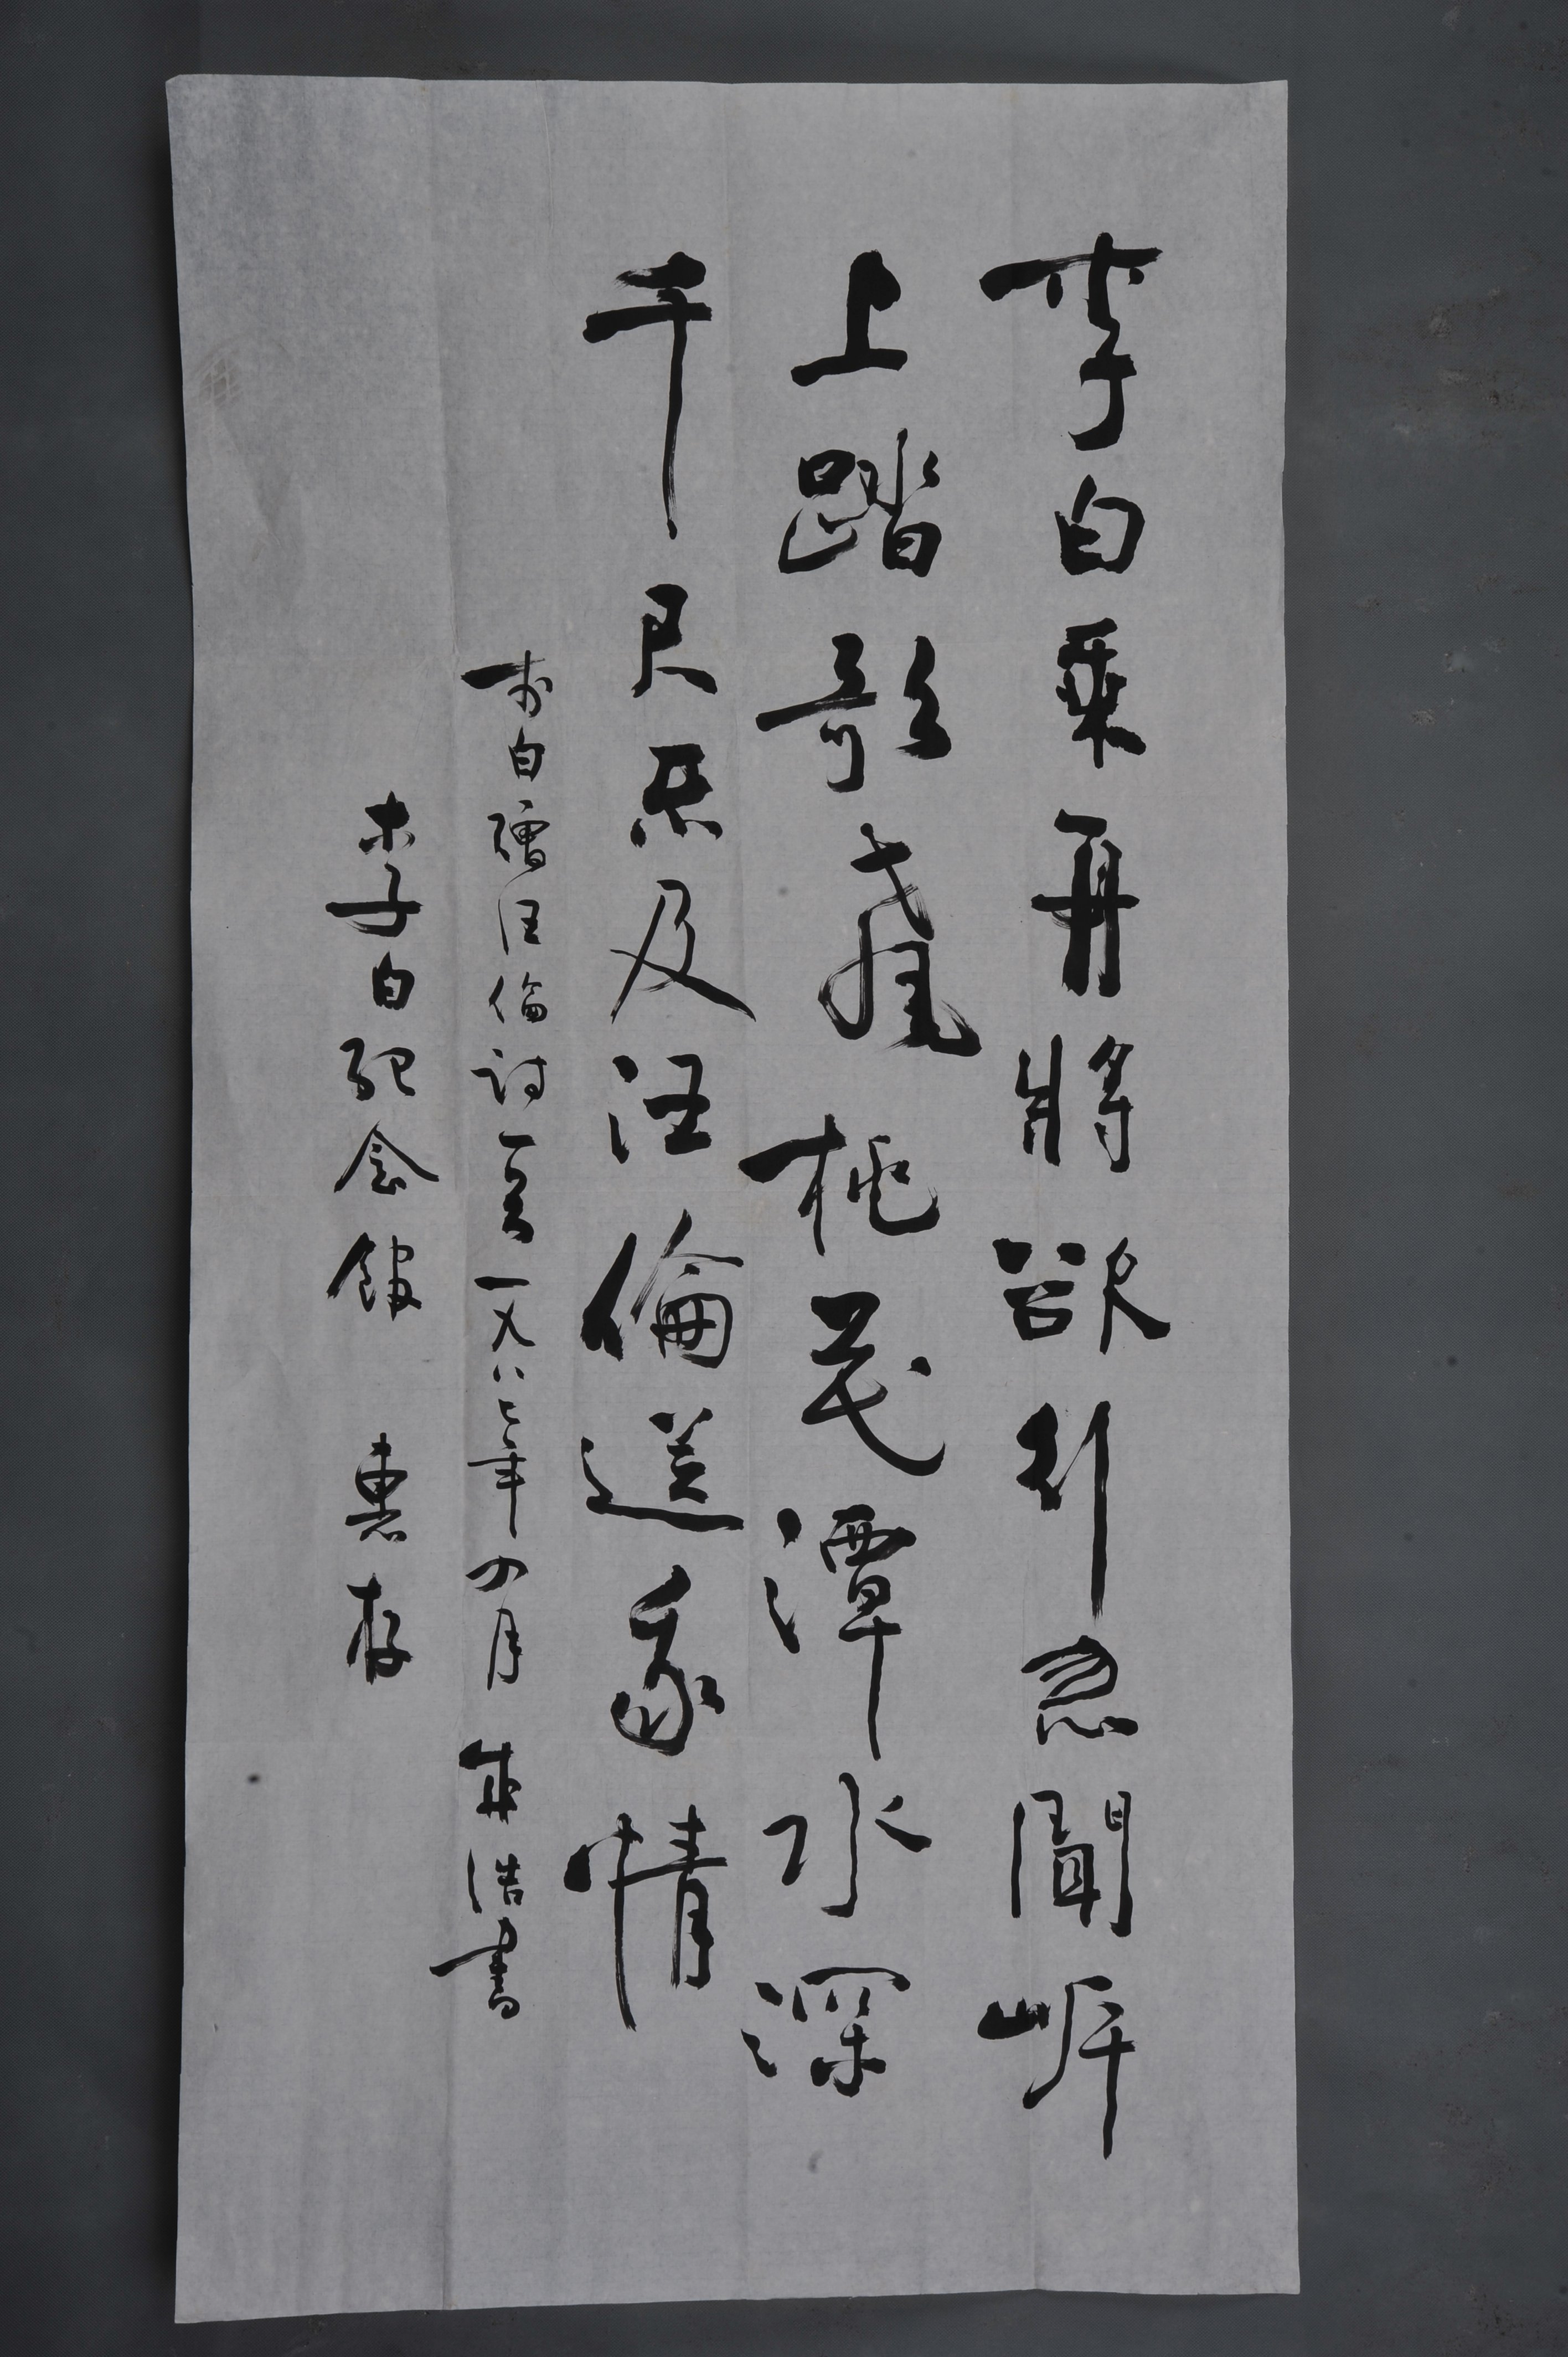 李白乘舟將欲行忽聞岸
上踏歌聲桃花潭水深
千尺不及汪倫送我情
李白贈汪倫詩一首一九八七年四月 浩書
李白紀念館 惠存